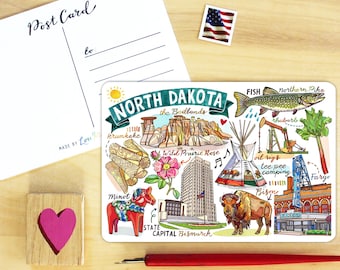 Post Card
to
MADE BY
NORTH DAKOTA
the Badlands
FISH
Northern Pike
krumkake
Wild Prairie Rose
rhubarb
oil rigs
tee pee
camping
Fargo
Minot
Bison
STATE
CAPITAL
Bismarck